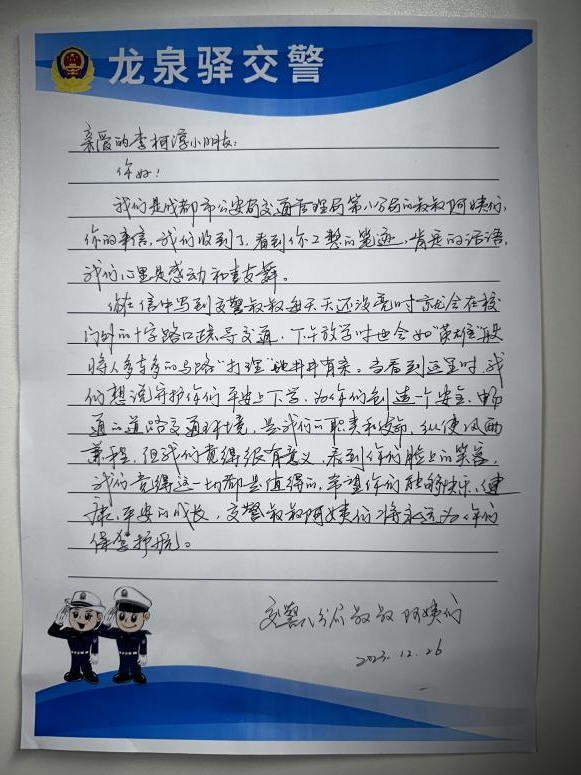 龙泉驿交警
亲爱的李柯淳小朋友:
你好!
我们是成都市公安局交通管理局第八分局的叔叔阿姨们,
你的来信,我们收到了,看到你工整的笔迹,肯定的话语,
我们心里是感动和喜鼓舞。
你在信中写到交警叔叔每天天还没亮时就会在校
门外的十字路口疏导交通,下午放学时也会如"英雄"般
将人多车多的马路"打理"地井井有条。当看到这里时,我
们想说守护你们平安上下学,为你们创造一个安全、畅
通的道路交通环境,是我们的职责和使命,纵使风雨
兼程,但我们觉得很有意义,看到你们脸上的笑容,
我们觉得这一切都是值得的,希望你们能够快乐、健
康、平安的成长,交警叔叔阿姨们将永远为你们
保驾护航。
交警八分局叔叔阿姨们
2023.12.26